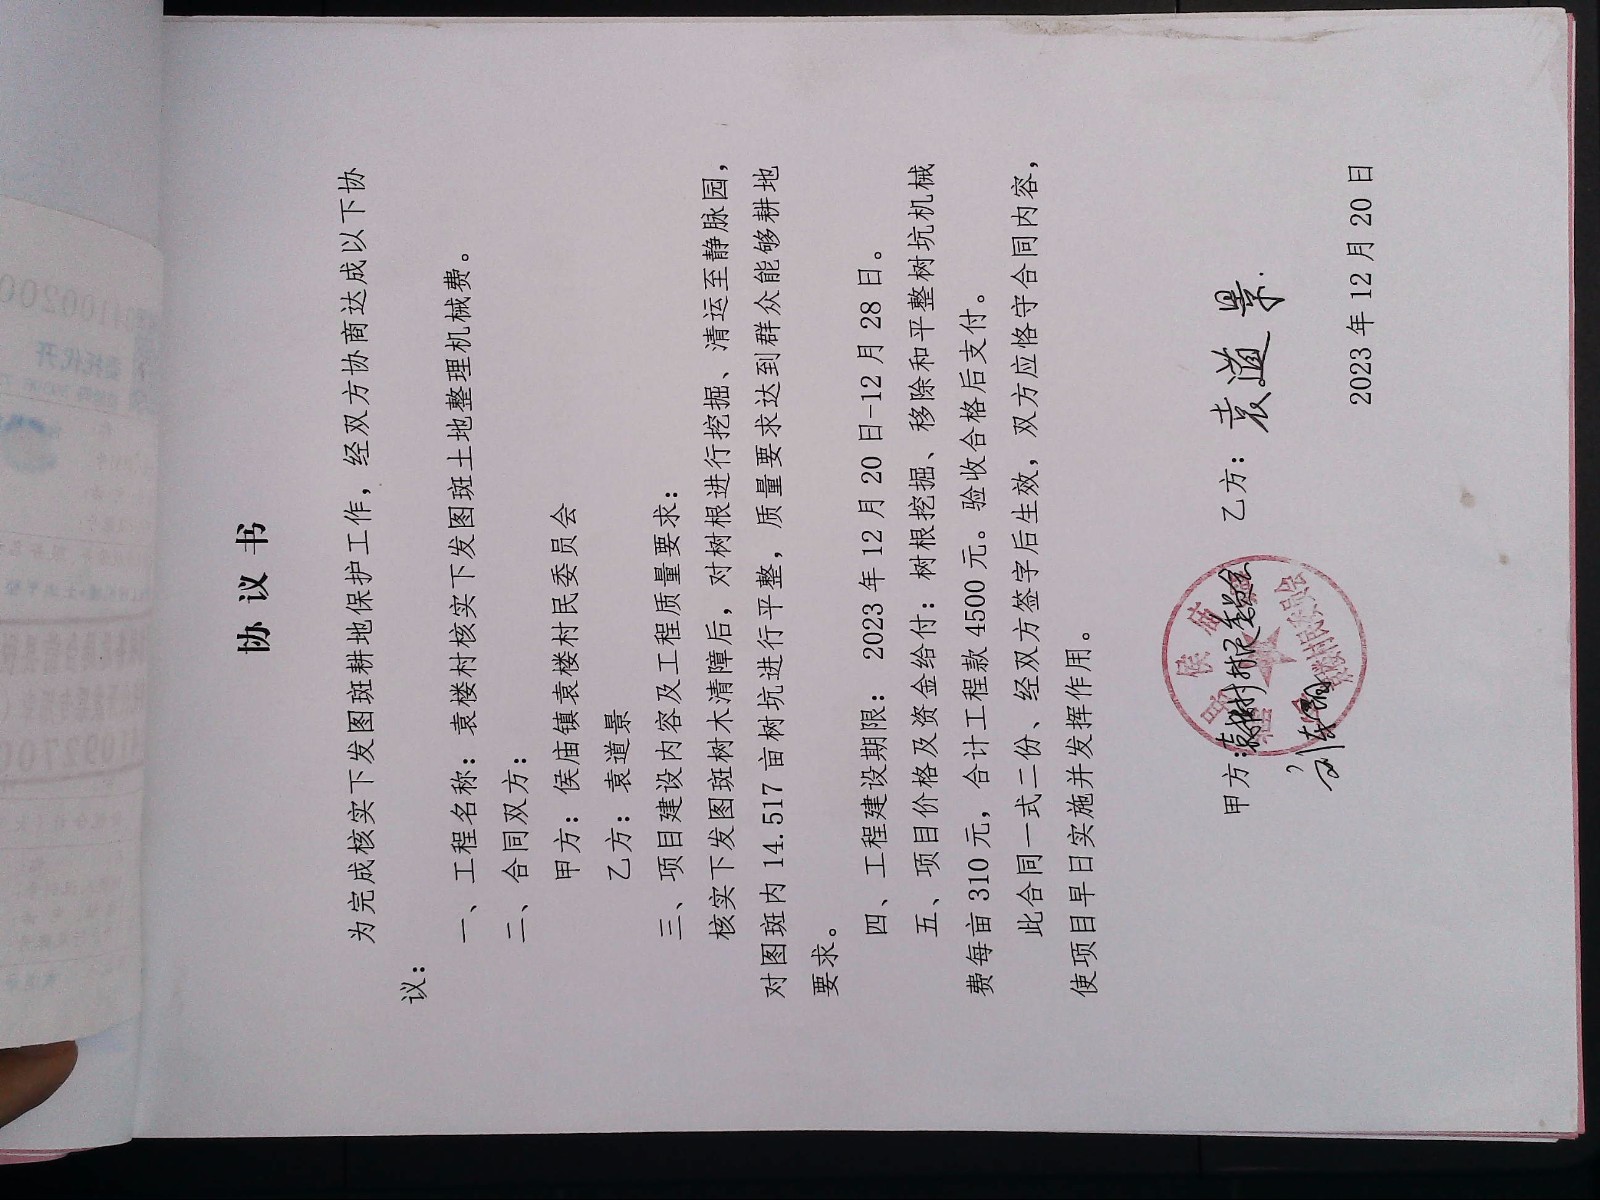 协 议 书
为完成核实下发图斑耕地保护工作，经双方协商达成以下协
议：
一、工程名称：袁楼村核实下发图斑土地整理机械费。
二、合同双方：
甲方：侯庙镇袁楼村民委员会
乙方：袁道景
三、项目建设内容及工程质量要求：
核实下发图斑树木清障后，对树根进行挖掘、清运至静脉园，
对图斑内 14.517 亩树坑进行平整，质量要求达到群众能够耕地
要求。
四、工程建设期限： 2023 年 12 月 20 日-12 月 28 日。
五、项目价格及资金给付：树根挖掘、移除和平整树坑机械
费每亩 310 元，合计工程款 4500 元。验收合格后支付。
此合同一式二份、经双方签字后生效，双方应恪守合同内容，
使项目早日实施并发挥作用。
甲方：袁楼村村民委员会 乙方：袁道景
侯庙
袁楼村村民委员会
2023 年 12 月 20 日
委托代开